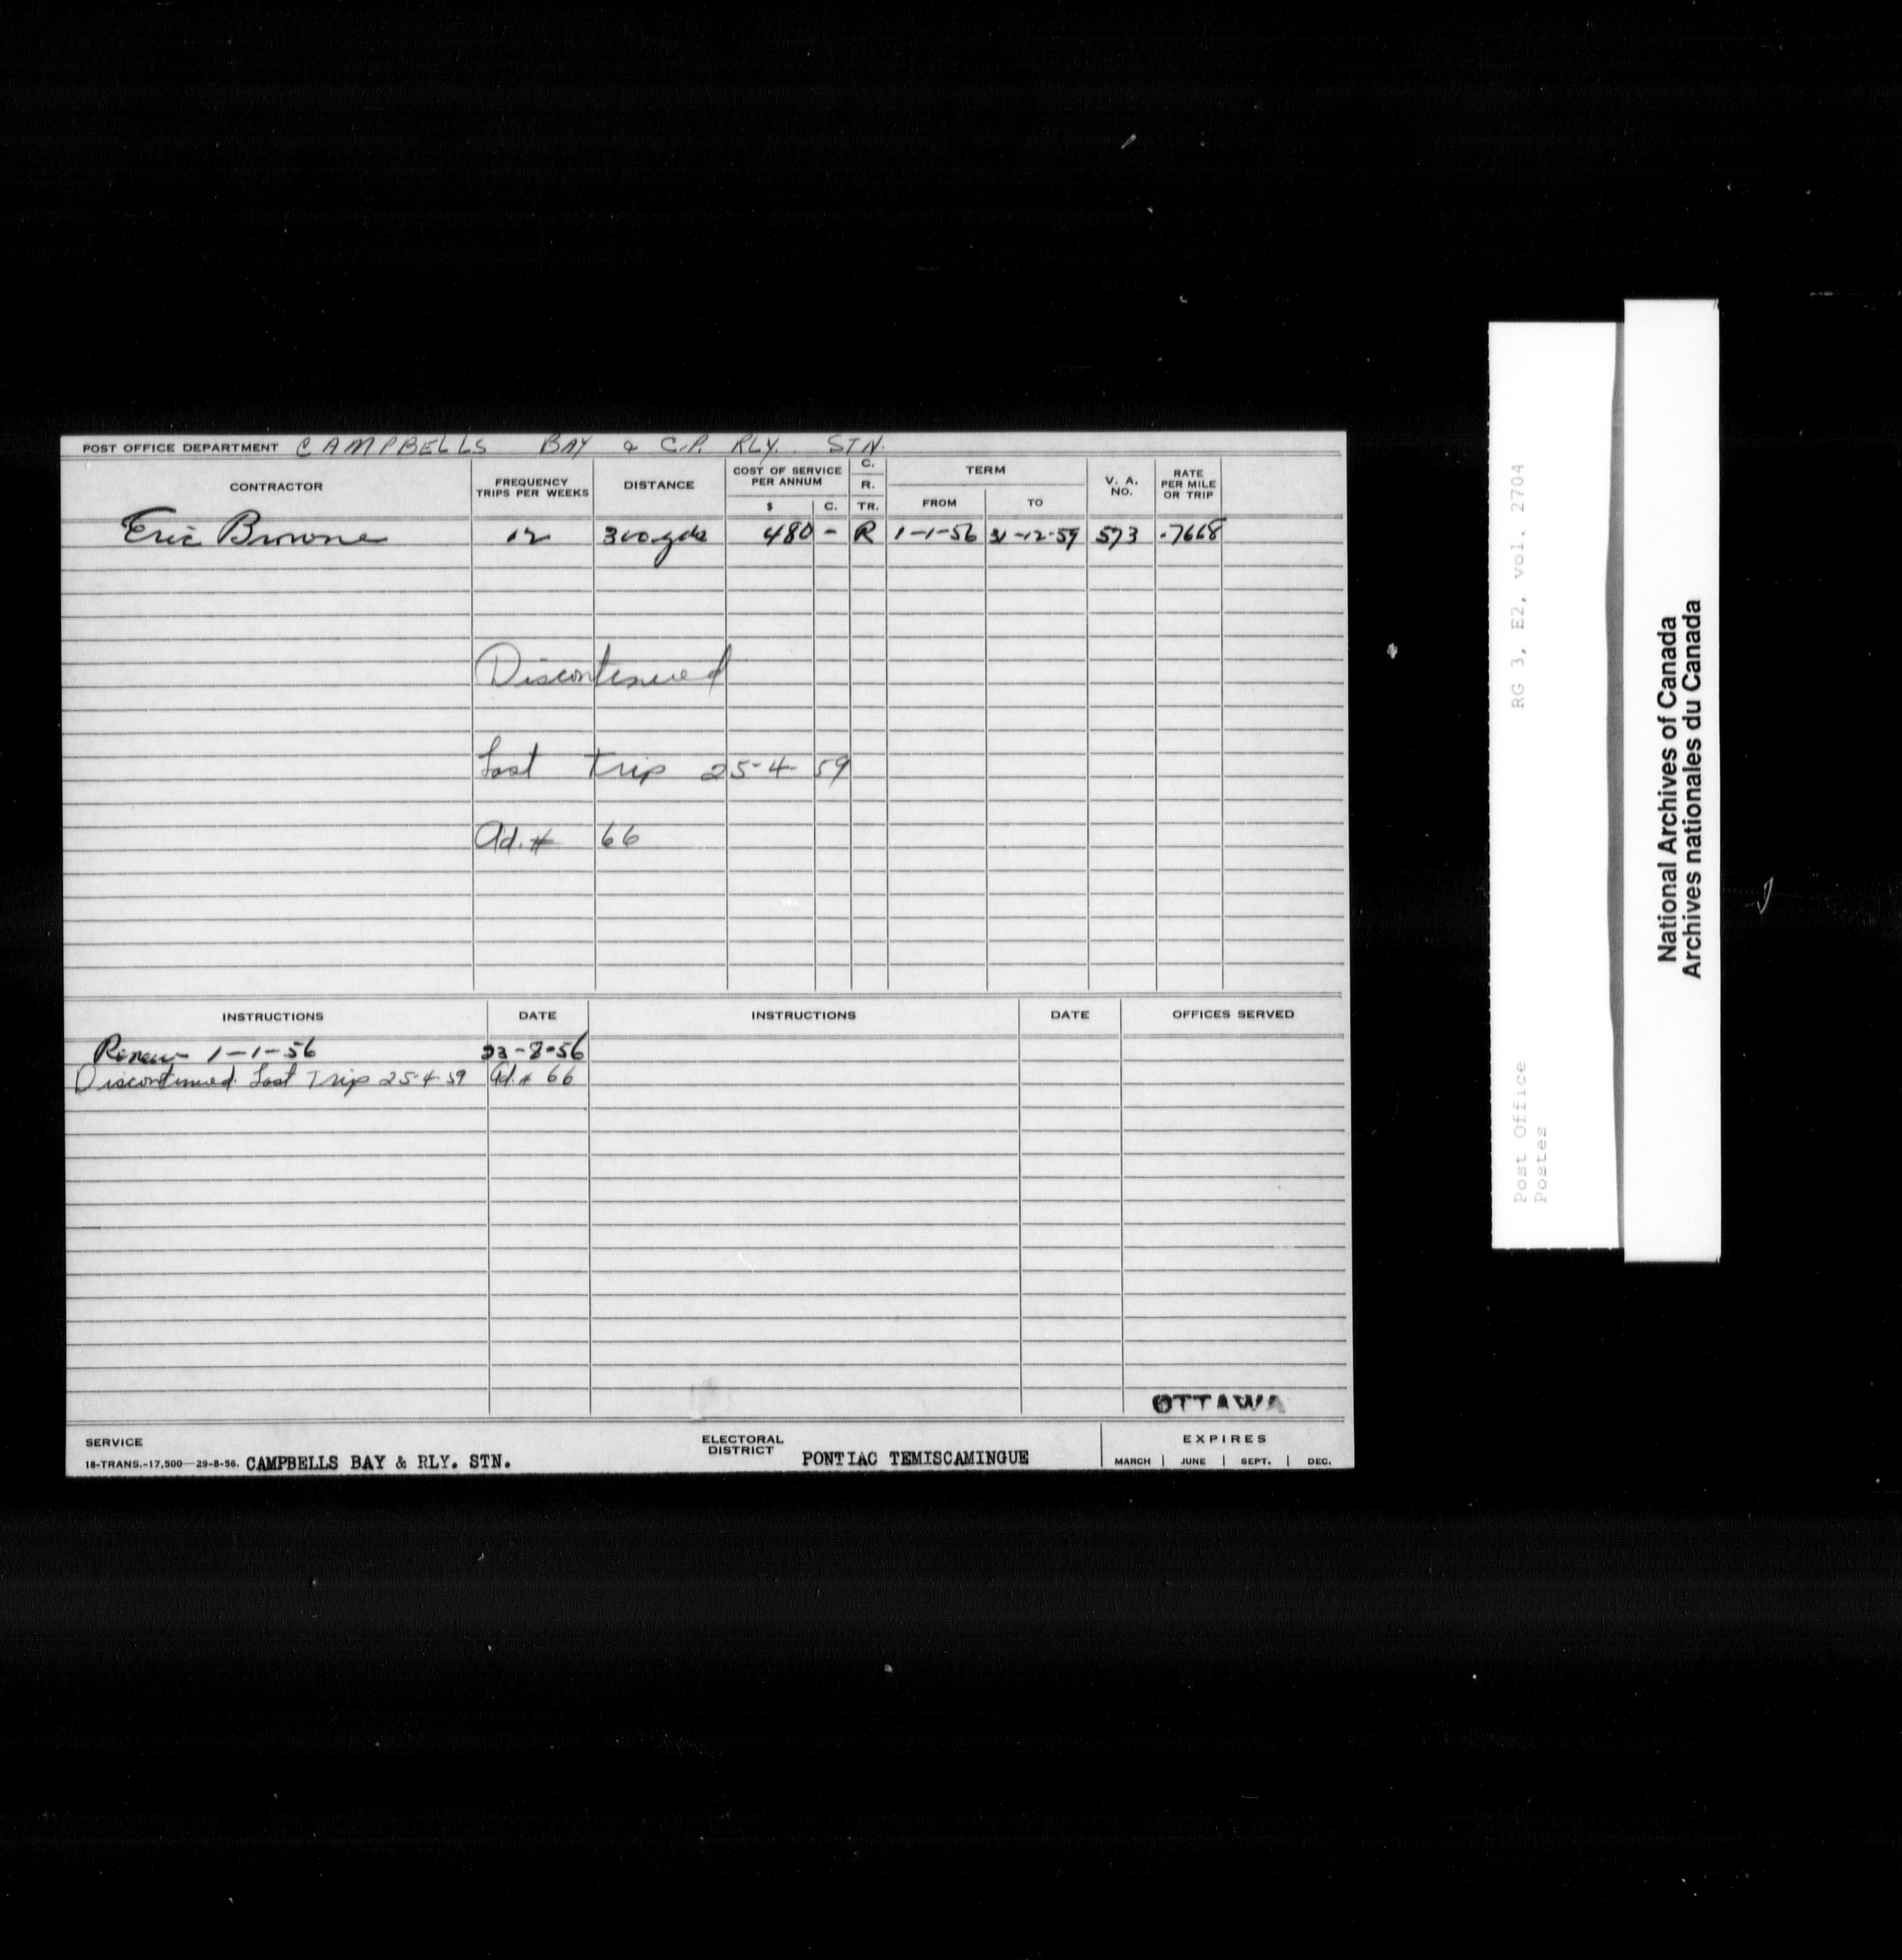 POST OFFICE DEPARTMENT CAMPBELLS BAY & C.P. RLY. STN.
CONTRACTOR FREQUENCY TRIPS PER WEEKS DISTANCE COST OF SERVICE PER ANNUM $ C. C. R. TR. TERM FROM TO V. A. NO. RATE PER MILE OR TRIP
Eric Browne 12 300 yds 480 - R 1-1-56 31-12-59 573 .7668
Discontinued
Last Trip 25-4-59
Ad. # 66
INSTRUCTIONS DATE INSTRUCTIONS DATE OFFICES SERVED
Renew 1-1-56 23-8-56
Discontinued. Last Trip 25-4-59 Ad. # 66
OTTAWA
SERVICE
18-TRANS.-17,500—29-8-56. CAMPBELLS BAY & RLY. STN.
ELECTORAL DISTRICT PONTIAC TEMISCAMINGUE
EXPIRES
MARCH JUNE SEPT. DEC.
RG 3, E2, vol. 2704
Post Office
Postes
National Archives of Canada
Archives nationales du Canada